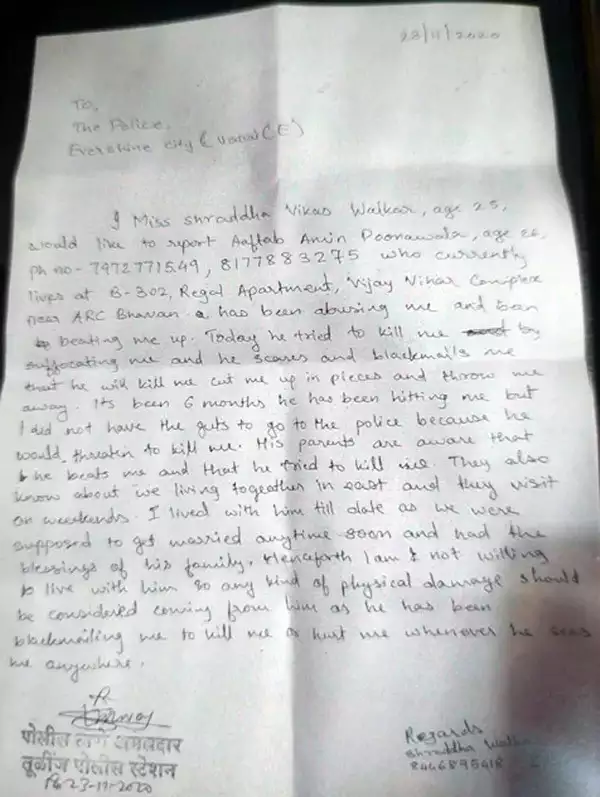 23/11/2020
To,
The Police,
Evershine City (Vasai (E)
I Miss Shraddha Vikas Walkar, age 25,
would like to report Aaftab Amin Poonawala, age 26,
ph no - 7972771549, 8177883275 who currently
lives at B-302, Regal Apartment, Vijay Vihar Complex
near ARC Bhavan has been abusing me and been
beating me up. Today he tried to kill me by
suffocating me and he scares and blackmails me
that he will kill me cut me up in pieces and throw me
away. Its been 6 months he has been hitting me but
I did not have the guts to go to the police because he
would threaten to kill me. His parents are aware that
he beats me and that he tried to kill me. They also
know about we living together in east and they visit
on weekends. I lived with him till date as we were
supposed to get married anytime soon and had the
blessings of his family. Henceforth I am not willing
to live with him so any kind of physical damage should
be considered coming from him as he has been
blackmailing me to kill me or hurt me whenever he sees
me anywhere.
पोलीस ठाणे अंमलदार
तूळींज पोलीस स्टेशन
23-11-2020
Regards
Shraddha Walkar
8466895418